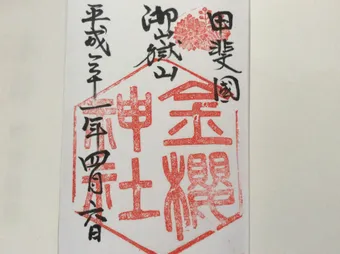 甲斐國
御嶽山
金櫻
神社
平成卅一年四月六日